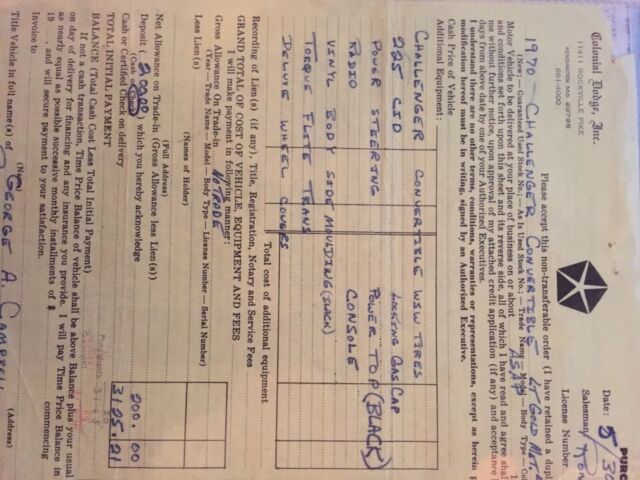 Colonial Dodge, Inc.
11411 ROCKVILLE PIKE
KENSINGTON MD. 20795
881-4000
PURC
Date: 5/30
Salesman
License Number
Please accept this non-transferable order (I have retained a dupl
1970 - CHALLENGER CONVERTIBLE LT GOLD MET.
(New: - Guaranteed Used Stock No.: - As Is Used Stock No.: - Trade Name - Model - Body Type - Co
Motor Vehicle to be delivered at your place of business on or about ASAP
and conditions set forth upon this sheet and its reverse side, all of which I have read and agree shal
me without further notice, upon approval of my attached credit application (if any) and acceptance
days from above date by one of your Authorized Executives.
I understand there are no other terms, conditions, warranties or representations, except as herein p
modification hereof must be in writing, signed by an Authorized Executive.
Cash Price of Vehicle
Additional Equipment:
CHALLENGER CONVERTIBLE WSW TIRES
225 CID LOCKING GAS CAP
POWER STEERING POWER TOP (BLACK)
RADIO CONSOLE
VINYL BODY SIDE MOULDING (BLACK)
TORQUE FLITE TRANS
DELUXE WHEEL COVERS
Total cost of additional equipment
Recording of Lien(s) (if any), Title, Registration, Notary and Service Fees
GRAND TOTAL OF COST OF VEHICLE, EQUIPMENT AND FEES
I will make payment in following manner:
Gross Allowance On Trade-in NO TRADE
(Year - Trade Name - Model - Body Type - License Number - Serial Number)
Less Lien(s)
(Names of Holder)
(Full Address)
Net Allowance on Trade-in (Gross Allowance less Lien(s))
Deposit (200.00) which you hereby acknowledge 200.00
(Cash or Check)
Cash or Certified Check on delivery 3125.21
TOTAL INITIAL PAYMENT
BALANCE (Total Cash Cost Less Total Initial Payment)
If not a cash transaction, Time Price Balance of vehicle shall be above Balance plus your usual
on day of delivery for financing and any insurance you provide. I will pay Time Price Balance in
as nearly equal as possible successive monthly installments of $ commencing
19 . and will secure payment to your satisfaction.
Invoice to
(Name) (Address)
Title Vehicle in full name(s) of GEORGE A. CAMPBELL